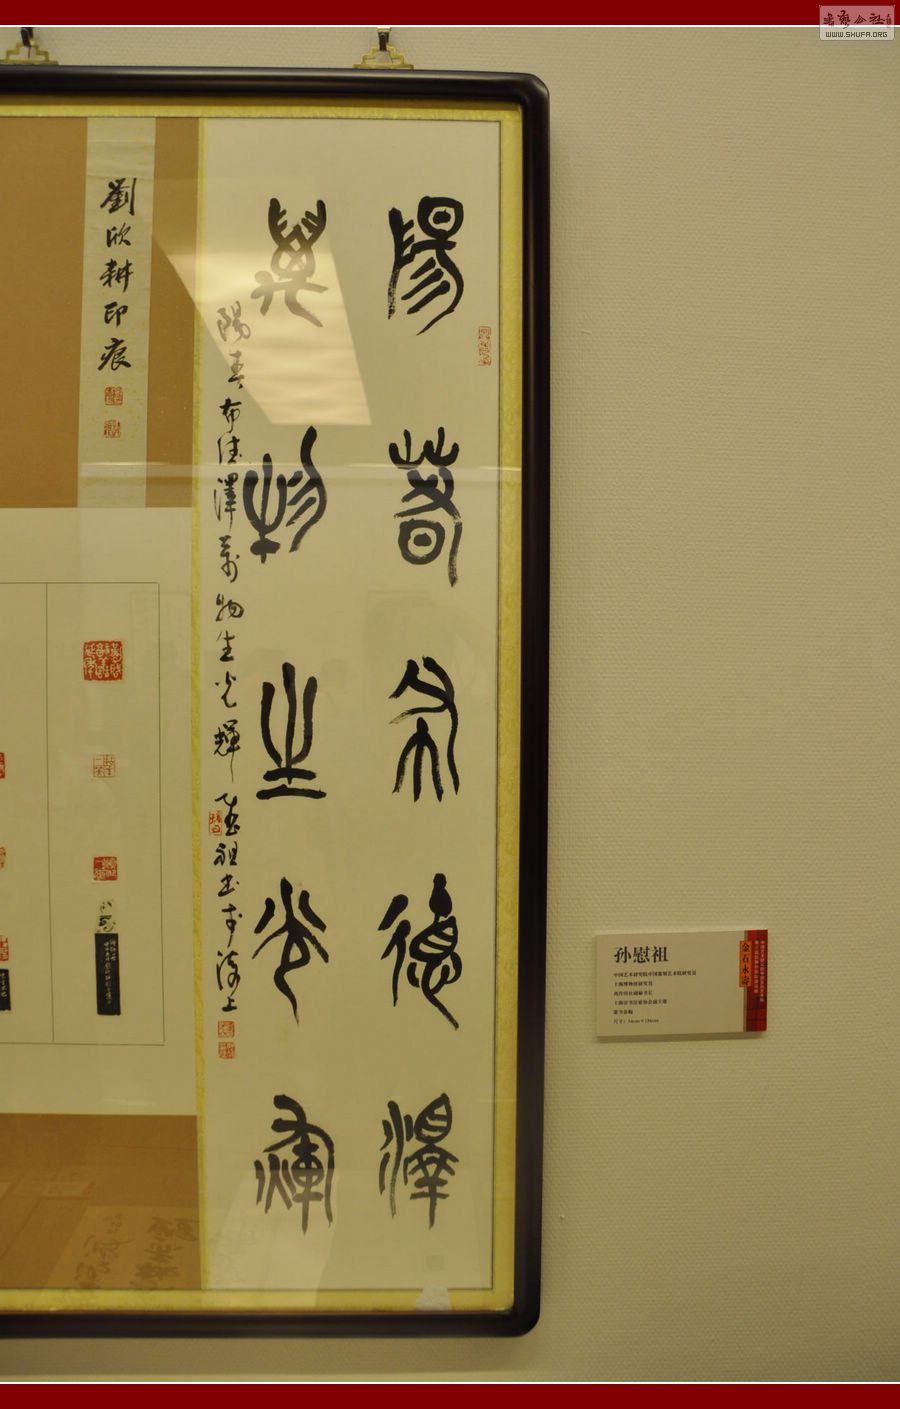 陽春布德澤
萬物生光輝
陽春布德澤萬物生光輝
慰祖書於海上
劉欣耕印痕
孙慰祖
中国艺术研究院中国篆刻艺术院研究员
上海博物馆研究员
西泠印社副秘书长
上海市书法家协会副主席
篆书条幅
金石永寿
WWW.SHUFA.ORG